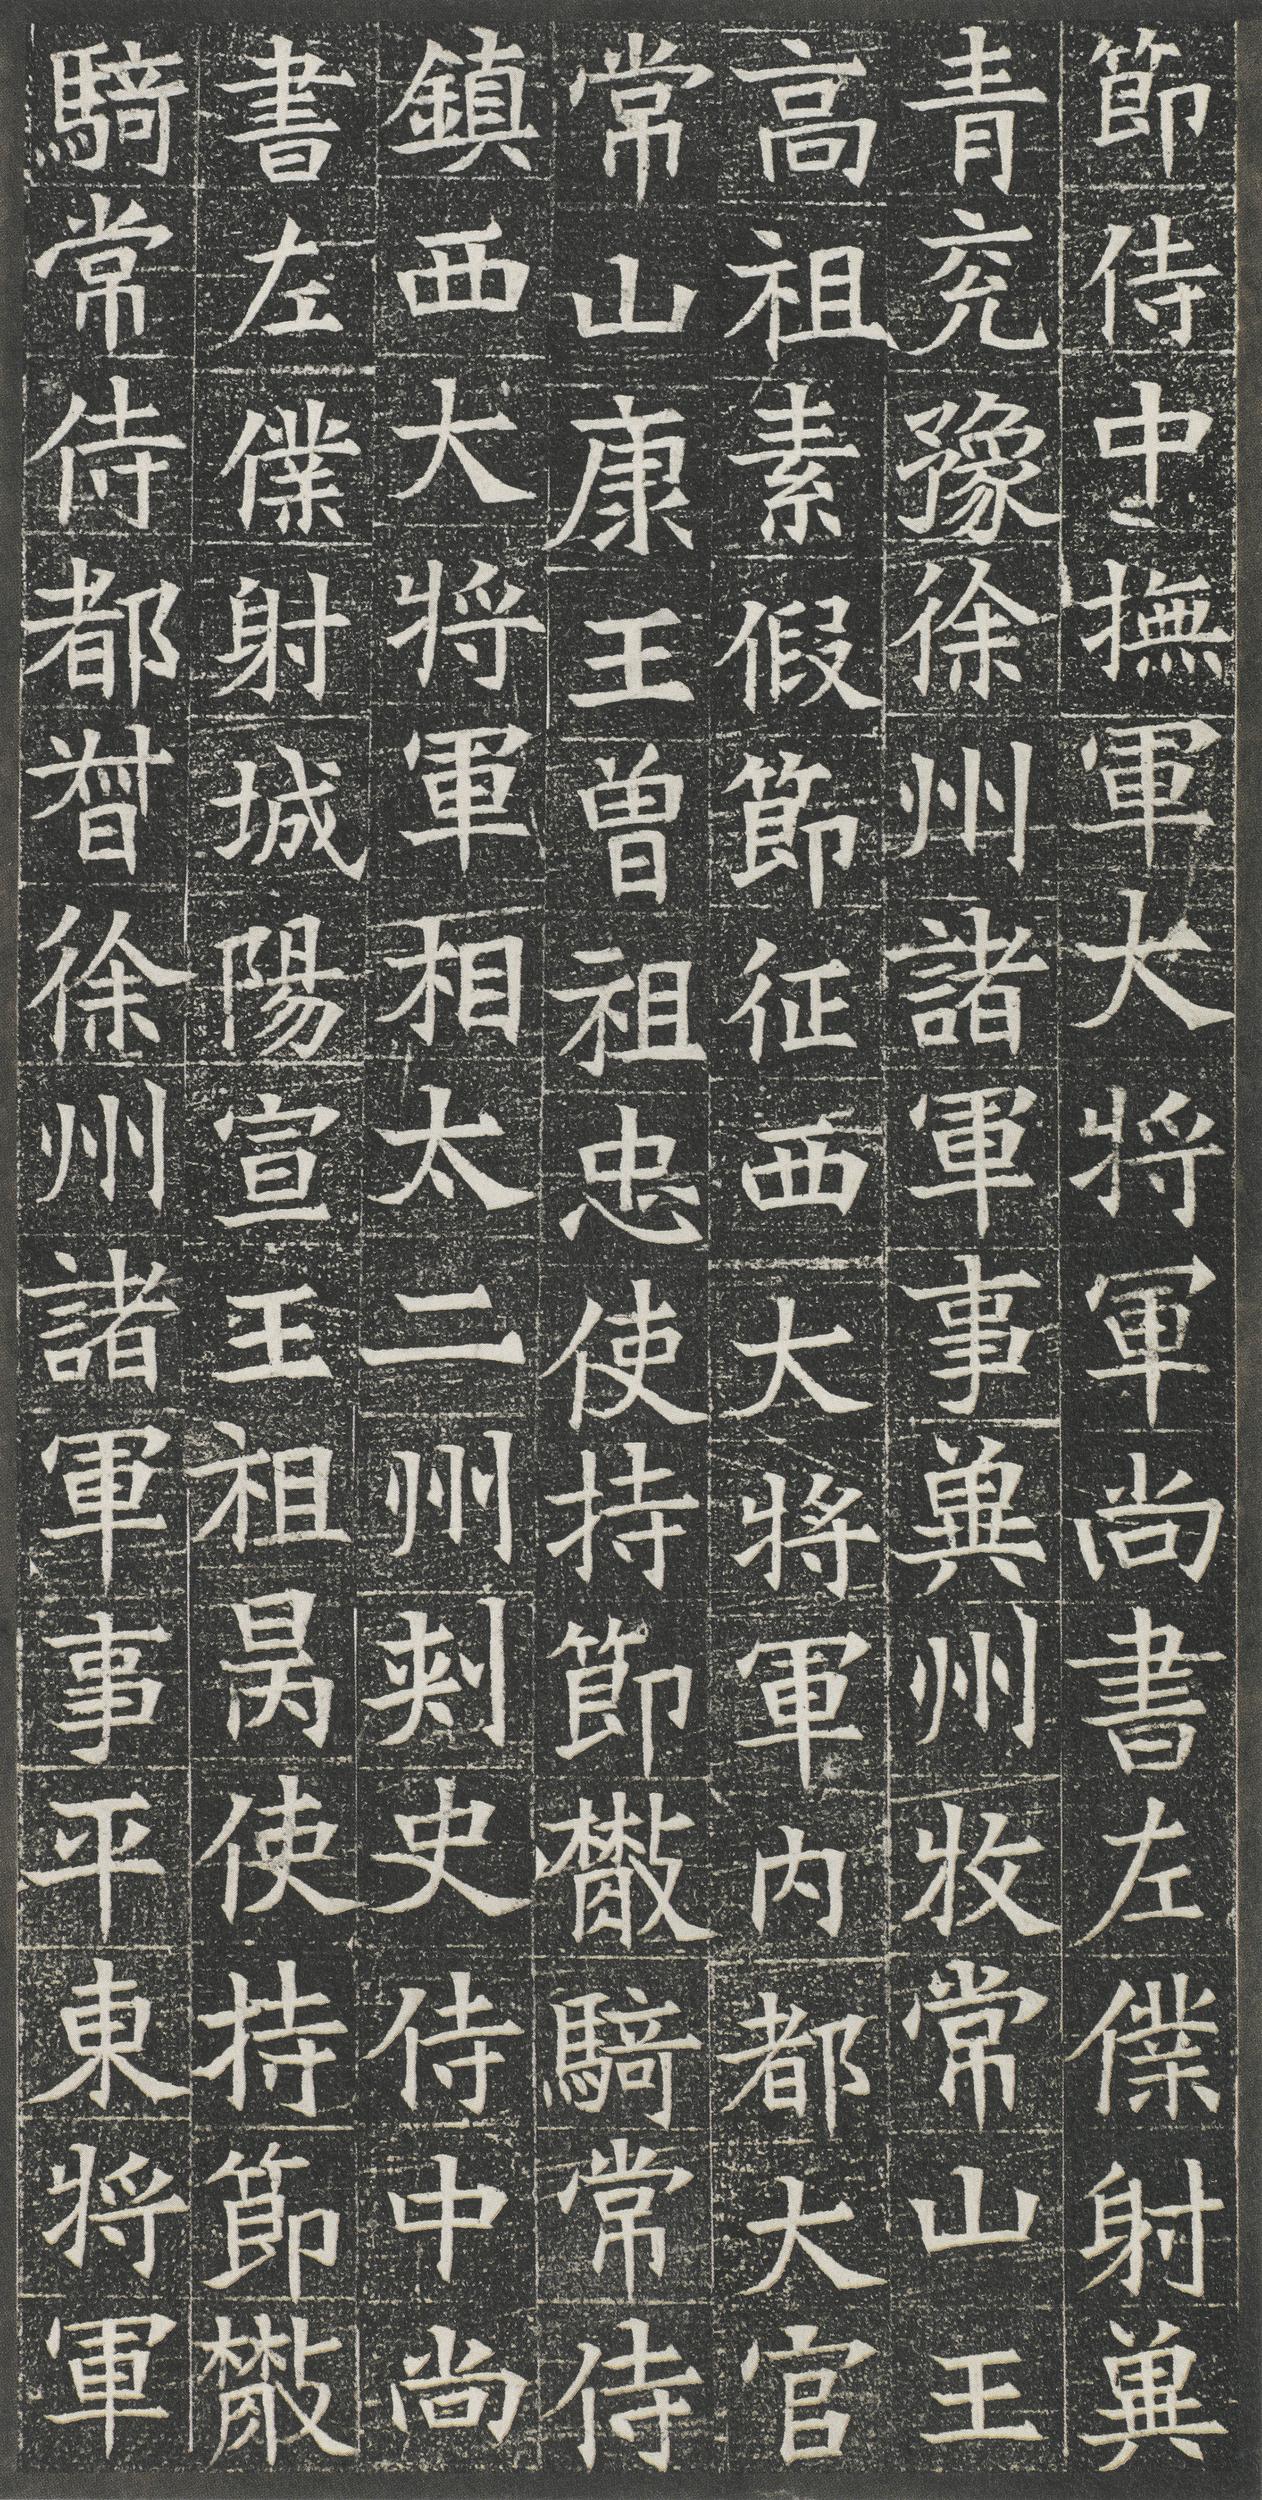 節侍中撫軍大将軍尚書左僕射冀
青兗豫徐州諸軍事冀州牧常山王
高祖素假節征西大將軍内都大官
常山康王曾祖忠使持節散騎常侍
鎮西大将軍相太二州刺史侍中尚
書左僕射城陽宣王祖昺使持節散
騎常侍都督徐州諸軍事平東将軍